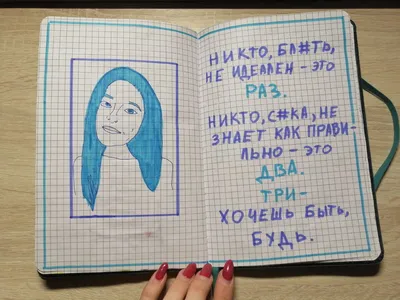 НИКТО, БЛ#ТЬ,
НЕ ИДЕАЛЕН – ЭТО
РАЗ.
НИКТО, С#КА, НЕ
ЗНАЕТ КАК ПРАВИ-
ЛЬНО – ЭТО
ДВА.
ТРИ-
ХОЧЕШЬ БЫТЬ,
БУДЬ.